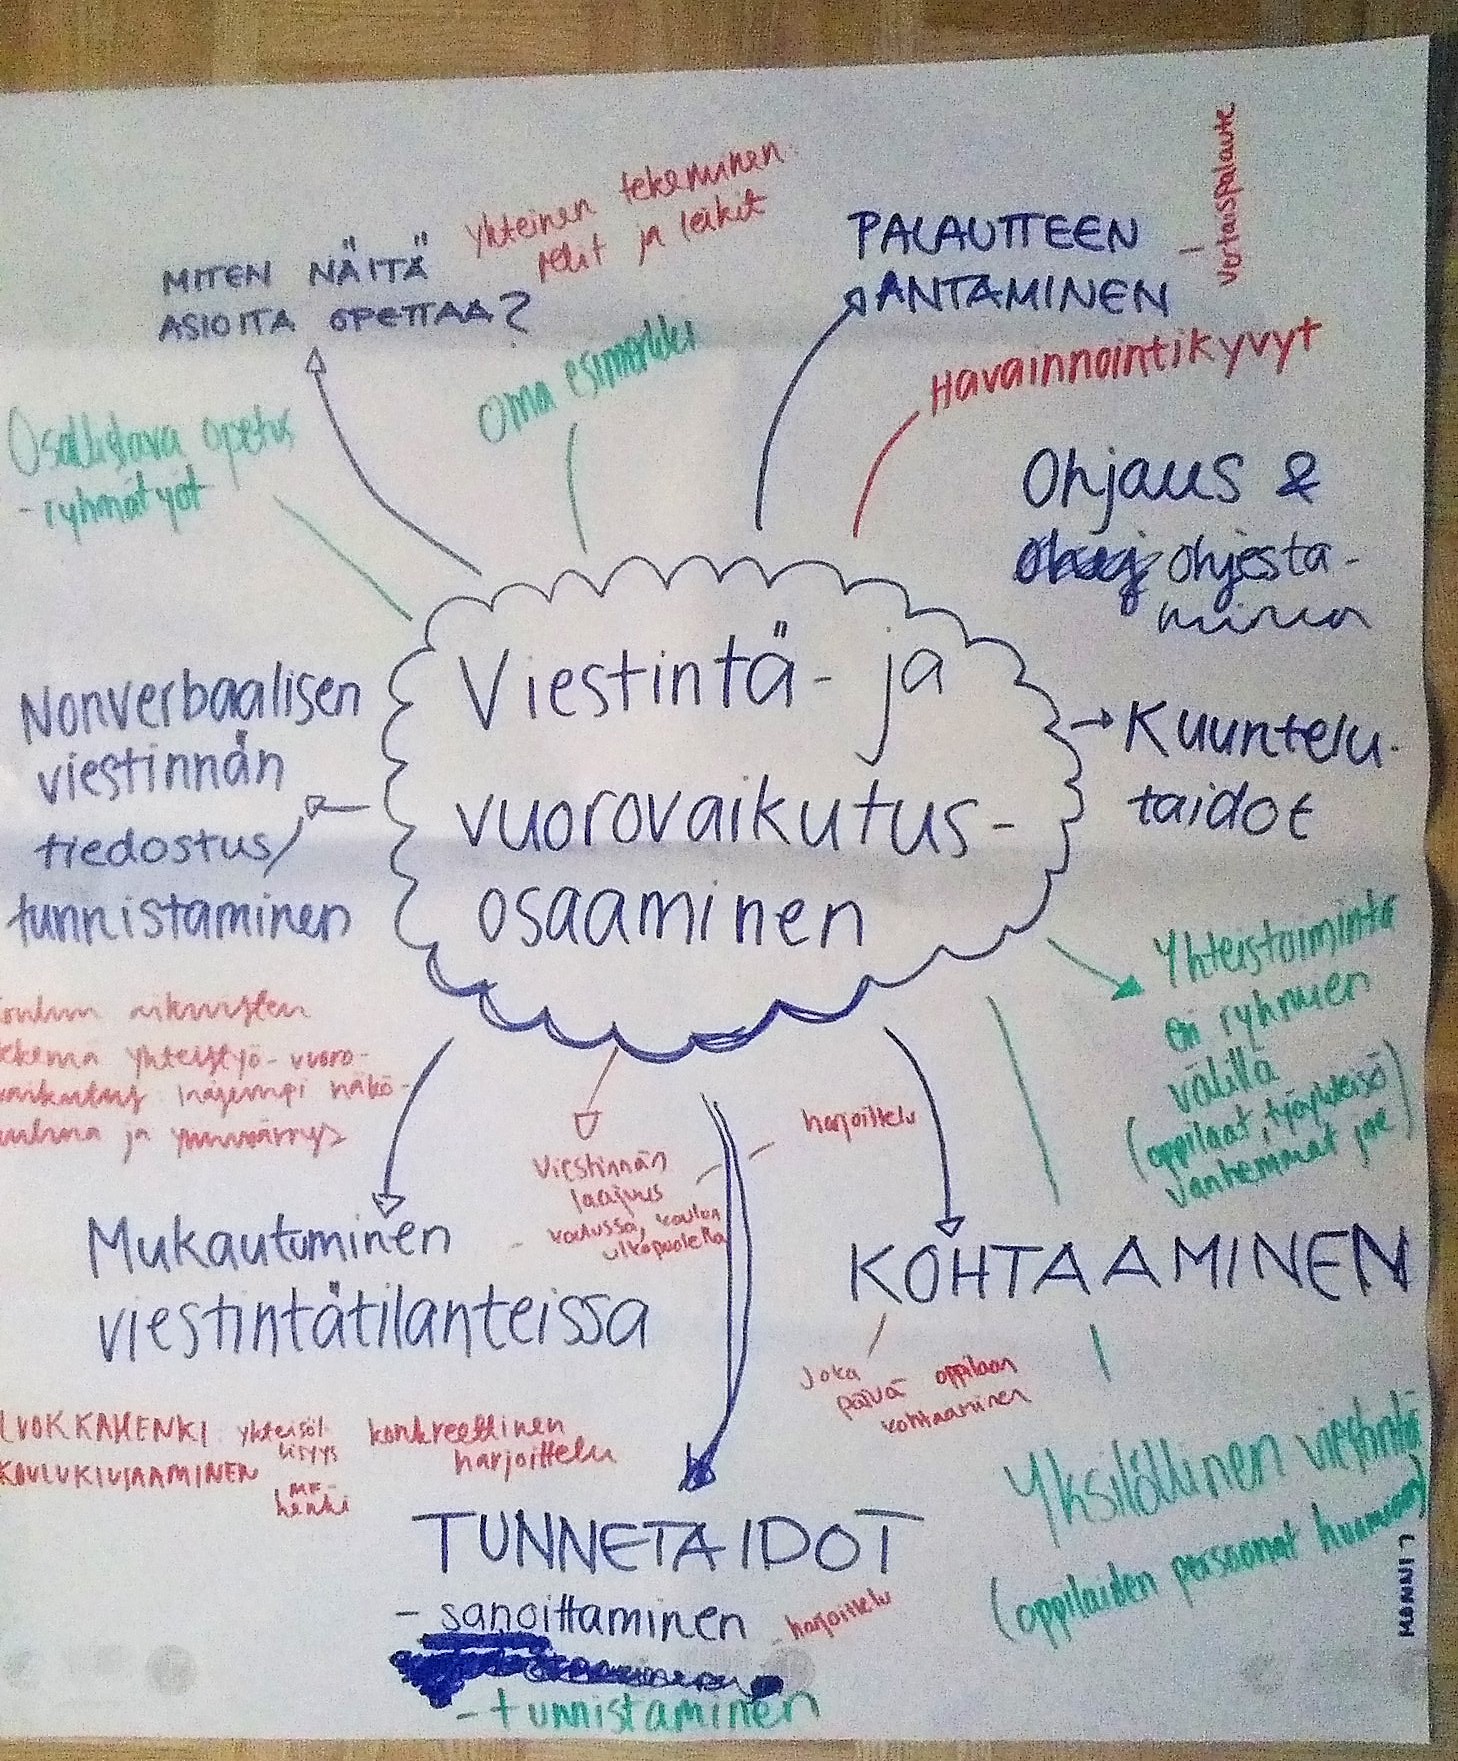 vertaispalaute
yhteinen tekeminen
pelit ja leikit
PALAUTTEEN
ANTAMINEN
MITEN NÄITÄ
ASIOITA OPETTAA?
Oma esimerkki
Havainnointikyvyt
Osallistava opetus
- ryhmätyöt
Ohjaus &
ohjesta-
minen
Viestintä- ja
vuorovaikutus-
osaaminen
Nonverbaalisen
viestinnän
tiedostus/
tunnistaminen
→ Kuuntelu-
taidot
Yhteistoiminta
eri ryhmien
välillä
(oppilaat, työyhteisö
vanhemmat jne)
koulun aikuisten
tekemä yhteistyö-vuoro-
vaikutus laajempi näkö-
kulma ja ymmärrys
harjoittelu
Viestinnän
laajuus
koulussa, koulun
ulkopuolella
Mukautuminen
viestintätilanteissa
KOHTAAMINEN
Joka
päivä oppilaan
kohtaaminen
LUOKKAHENKI yhteisöl-
lisyys
KOULUKIUSAAMINEN
ME-
henki
konkreettinen
harjoittelu
Yksilöllinen viestintä
(oppilaiden persoonat huomioon)
TUNNETAIDOT
- sanoittaminen
- harjoittelu
- tunnistaminen
LINNI